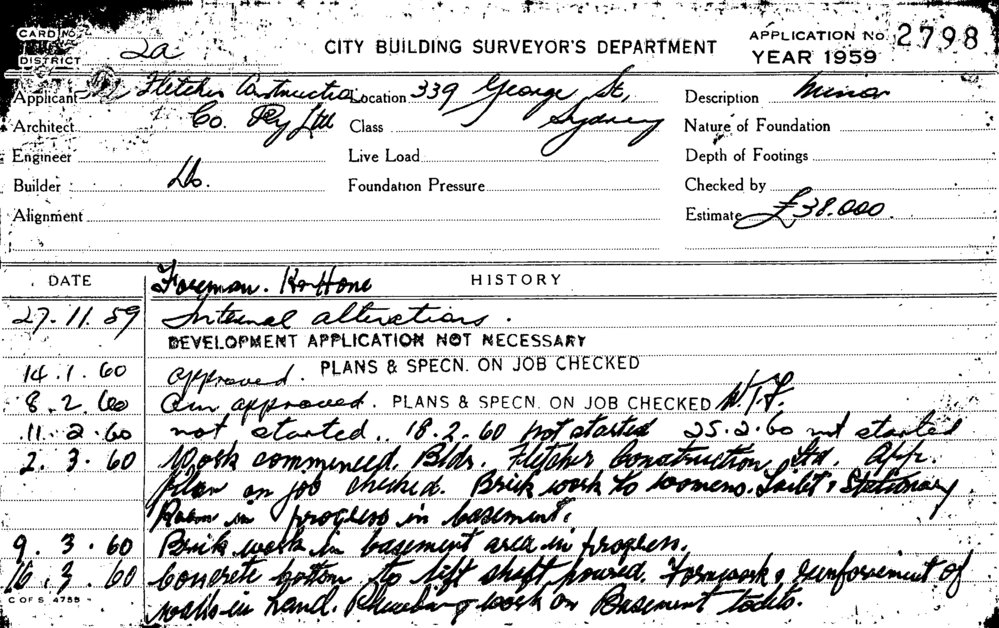 CARD NO.
DISTRICT 2a
CITY BUILDING SURVEYOR'S DEPARTMENT
APPLICATION No 2798
YEAR 1959
Applicant Fletcher Construction Location 339 George St, Description Minor
Architect Co. Pty Ltd Class Sydney Nature of Foundation
Engineer Live Load Depth of Footings
Builder Do. Foundation Pressure Checked by
Alignment Estimate £38.000.
DATE Foreman. HISTORY
27.11.59 Internal alterations.
DEVELOPMENT APPLICATION NOT NECESSARY
14.1.60 approved. PLANS & SPECN. ON JOB CHECKED
8.2.60 approved. PLANS & SPECN. ON JOB CHECKED
11.2.60 not started. 18.2.60 not started 25.2.60 not started
2.3.60 Work commenced. Bldr. Fletcher Construction Ltd App.
plan on job checked. Brick work to womens. Toilet & Stationary
Room in progress in basement.
9.3.60 Brick work in basement area in progress.
16.3.60 Concrete bottom to lift shaft poured. Formwork & reinforcement of
walls in hand. Plumbing work on Basement toilets.
C OF S 4755